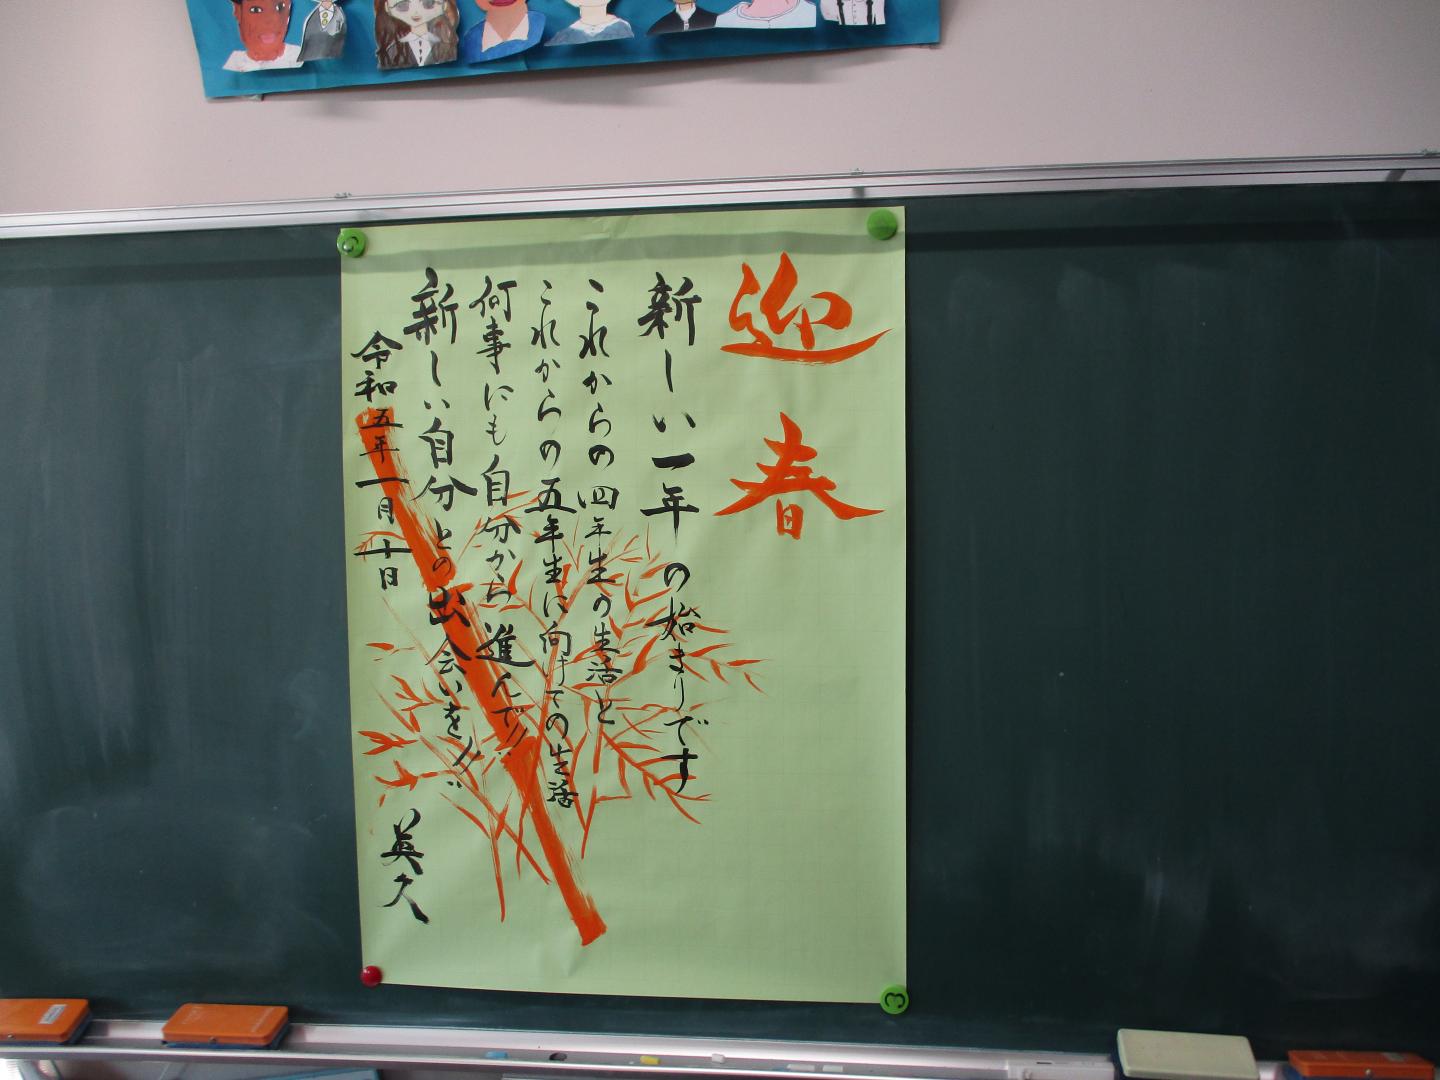 迎春
新しい一年の始まりです
これからの四年生の生活と
これからの五年生に向けての生活
何事にも自分から進んで!!
新しい自分との出会いを!!
令和五年一月十日
英久